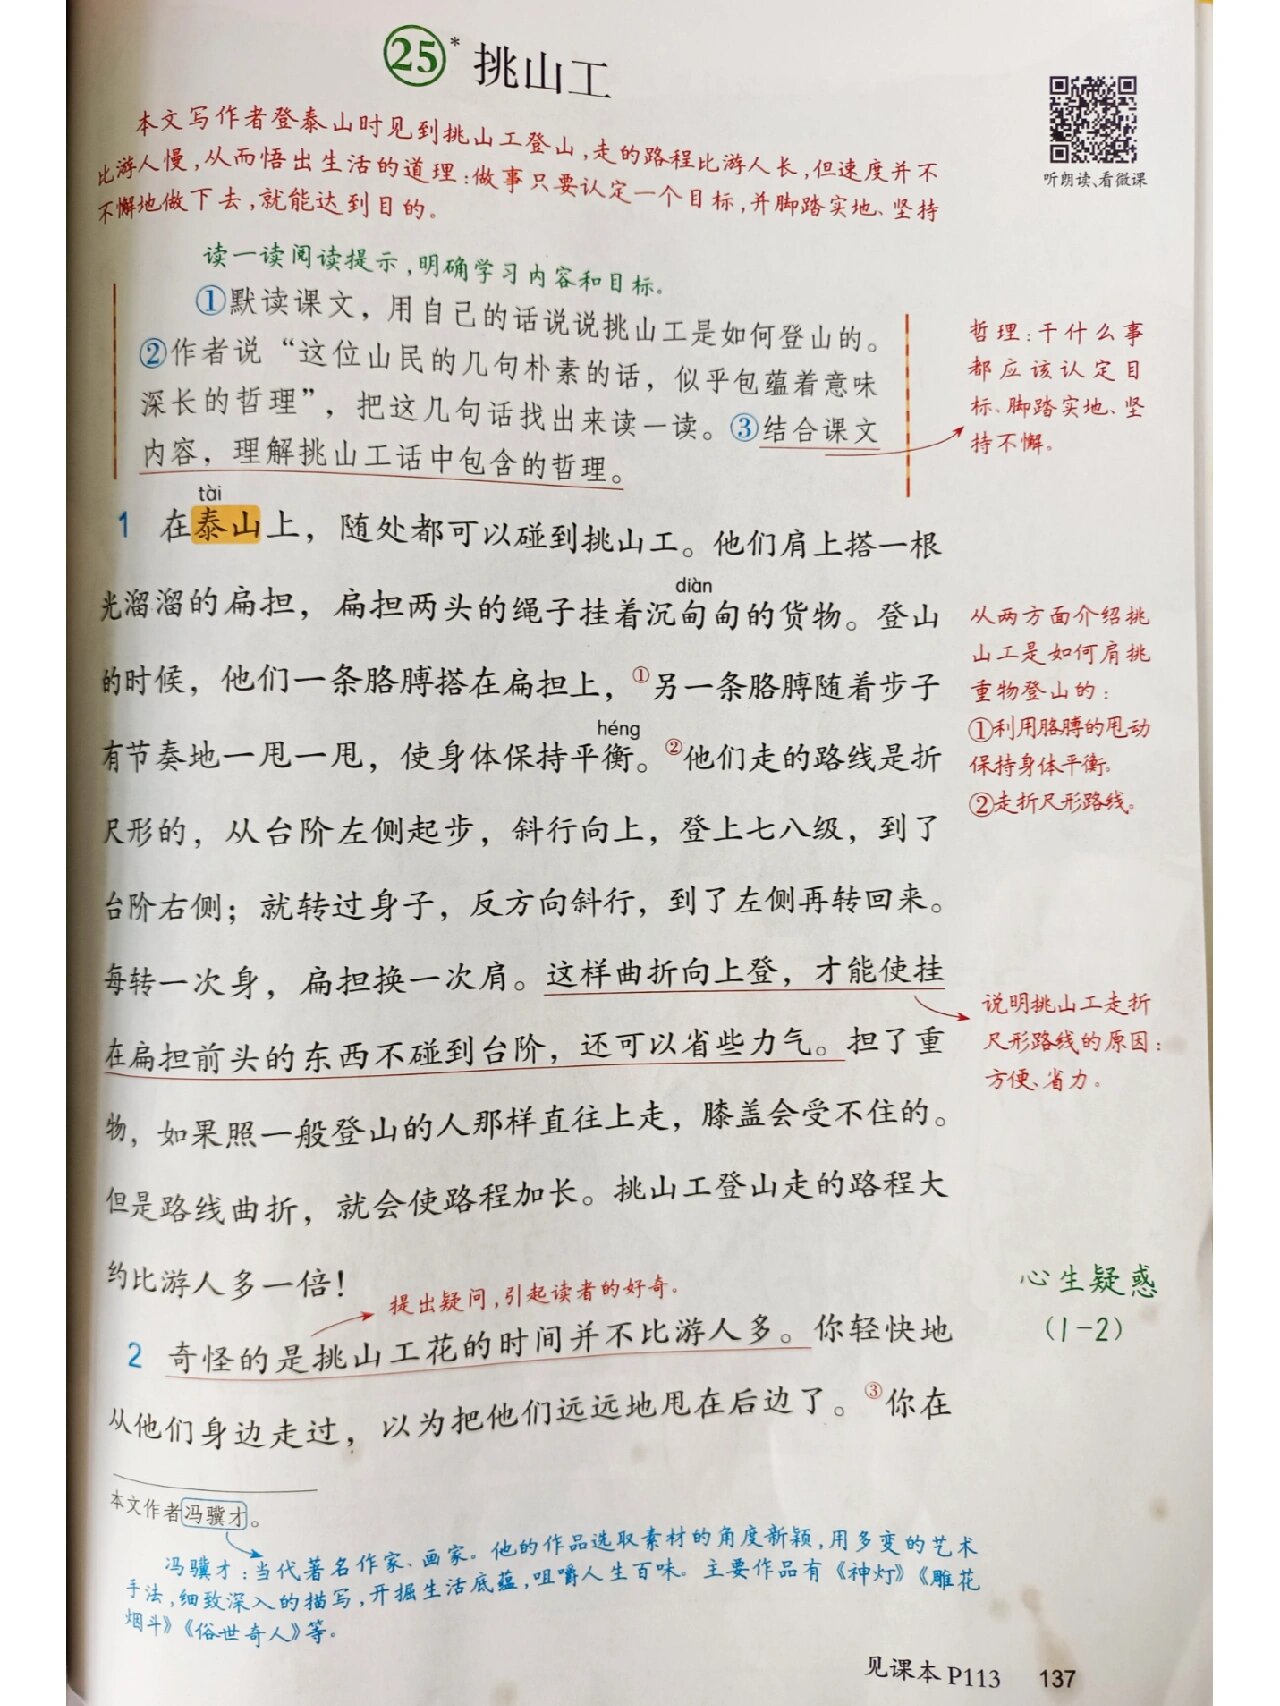 25* 挑山工
本文写作者登泰山时见到挑山工登山,走的路程比游人长,但速度并不
比游人慢,从而悟出生活的道理:做事只要认定一个目标,并脚踏实地、坚持
不懈地做下去,就能达到目的。
听朗读、看微课
读一读阅读提示,明确学习内容和目标。
①默读课文，用自己的话说说挑山工是如何登山的。
②作者说“这位山民的几句朴素的话，似乎包蕴着意味
深长的哲理”，把这几句话找出来读一读。③结合课文
内容，理解挑山工话中包含的哲理。
哲理:干什么事
都应该认定目
标、脚踏实地、坚
持不懈。
tài
1 在泰山上，随处都可以碰到挑山工。他们肩上搭一根
diàn
光溜溜的扁担，扁担两头的绳子挂着沉甸甸的货物。登山
的时候，他们一条胳膊搭在扁担上，①另一条胳膊随着步子
héng
有节奏地一甩一甩，使身体保持平衡。②他们走的路线是折
尺形的，从台阶左侧起步，斜行向上，登上七八级，到了
台阶右侧；就转过身子，反方向斜行，到了左侧再转回来。
每转一次身，扁担换一次肩。这样曲折向上登，才能使挂
在扁担前头的东西不碰到台阶，还可以省些力气。担了重
物，如果照一般登山的人那样直往上走，膝盖会受不住的。
但是路线曲折，就会使路程加长。挑山工登山走的路程大
约比游人多一倍！
从两方面介绍挑
山工是如何肩挑
重物登山的:
①利用胳膊的甩动
保持身体平衡。
②走折尺形路线。
说明挑山工走折
尺形路线的原因:
方便、省力。
提出疑问,引起读者的好奇。
2 奇怪的是挑山工花的时间并不比游人多。你轻快地
从他们身边走过，以为把他们远远地甩在后边了。③你在
心生疑惑
(1-2)
本文作者冯骥才。
冯骥才:当代著名作家、画家。他的作品选取素材的角度新颖,用多变的艺术
手法,细致深入的描写,开掘生活底蕴,咀嚼人生百味。主要作品有《神灯》《雕花
烟斗》《俗世奇人》等。
见课本P113 137